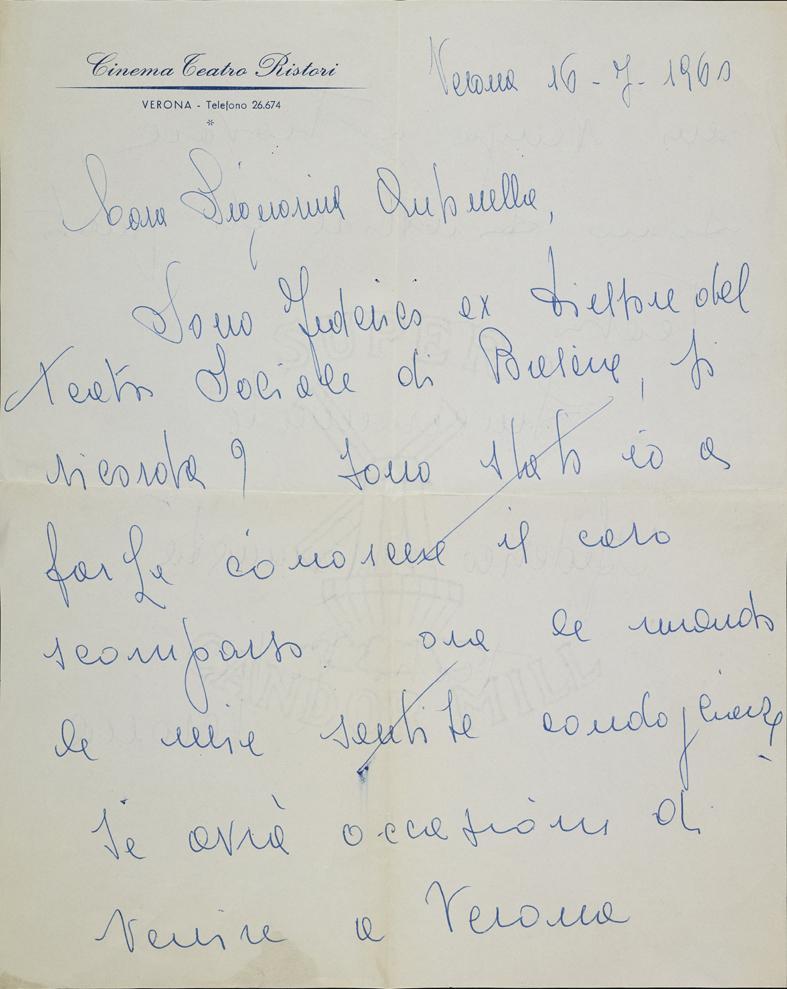 Cinema Teatro Ristori
VERONA - Telefono 26.674
Verona 16-7-1960
Cara Signorina Antonella,
Sono Federico ex Direttore del
teatro Sociale di Brescia, si
ricorda? Sono stato io a
farLe conoscere il caro
scomparso. ora le mando
le mie sentite condoglianze
Se avrà occasioni di
venire a Verona